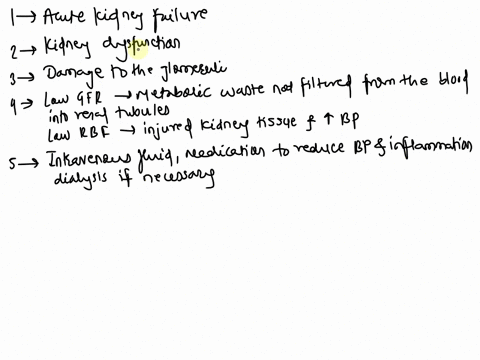 1 → Acute kidney failure
2 → Kidney dysfunction
3 → Damage to the glomeruli
4 → Low GFR → Metabolic waste not filtered from the blood
into renal tubules
Low RBF → injured kidney tissue & ↑ BP
5 → Intravenous fluid, medication to reduce BP & inflammation
dialysis if necessary